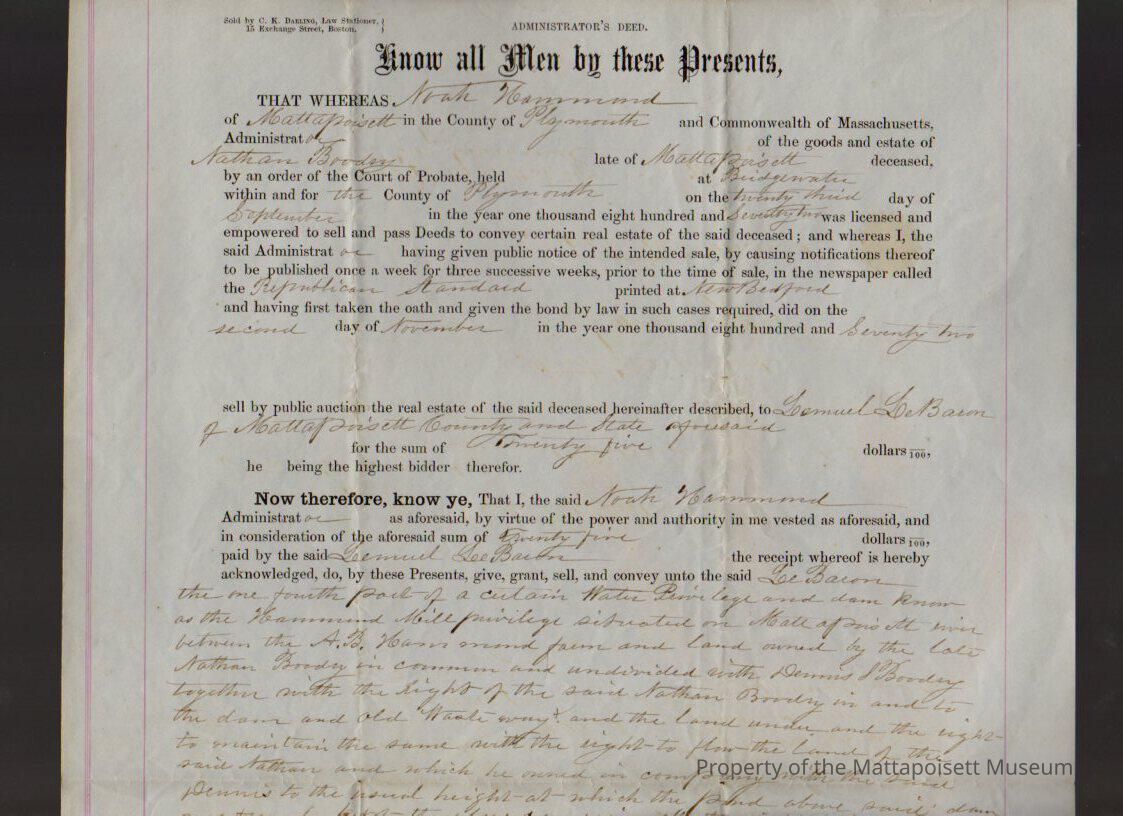 Sold by C. K. DARLING, Law Stationer, }
15 Exchange Street, Boston. }
ADMINISTRATOR'S DEED.
Know all Men by these Presents,
THAT WHEREAS Noah Hammond
of Mattapoisett in the County of Plymouth and Commonwealth of Massachusetts,
Administrator of the goods and estate of
Nathan Boodry late of Mattapoisett deceased,
by an order of the Court of Probate, held at Bridgewater
within and for the County of Plymouth on the twenty third day of
September in the year one thousand eight hundred and Seventy two was licensed and
empowered to sell and pass Deeds to convey certain real estate of the said deceased; and whereas I, the
said Administrator having given public notice of the intended sale, by causing notifications thereof
to be published once a week for three successive weeks, prior to the time of sale, in the newspaper called
the Republican Standard printed at New Bedford
and having first taken the oath and given the bond by law in such cases required, did on the
second day of November in the year one thousand eight hundred and Seventy two
sell by public auction the real estate of the said deceased hereinafter described, to Lemuel LeBaron
of Mattapoisett County and State aforesaid
for the sum of Twenty five dollars /100,
he being the highest bidder therefor.
Now therefore, know ye, That I, the said Noah Hammond
Administrator as aforesaid, by virtue of the power and authority in me vested as aforesaid, and
in consideration of the aforesaid sum of twenty five dollars /100,
paid by the said Lemuel LeBaron the receipt whereof is hereby
acknowledged, do, by these Presents, give, grant, sell, and convey unto the said LeBaron
the one fourth part of a certain Water Privilege and dam know
as the Hammond Mill privilege situated on Mattapoisett river
between the A.B. Hammond farm and land owned by the late
Nathan Boodry in common and undivided with Dennis Boodry
together with the Right of the said Nathan Boodry in and to
the dam and old Waste way and the land under and the right
to maintain the same with the right to flow the land of the
said Nathan and which he owned in company with the said
Dennis to the usual height at which the pond above said dam
Property of the Mattapoisett Museum